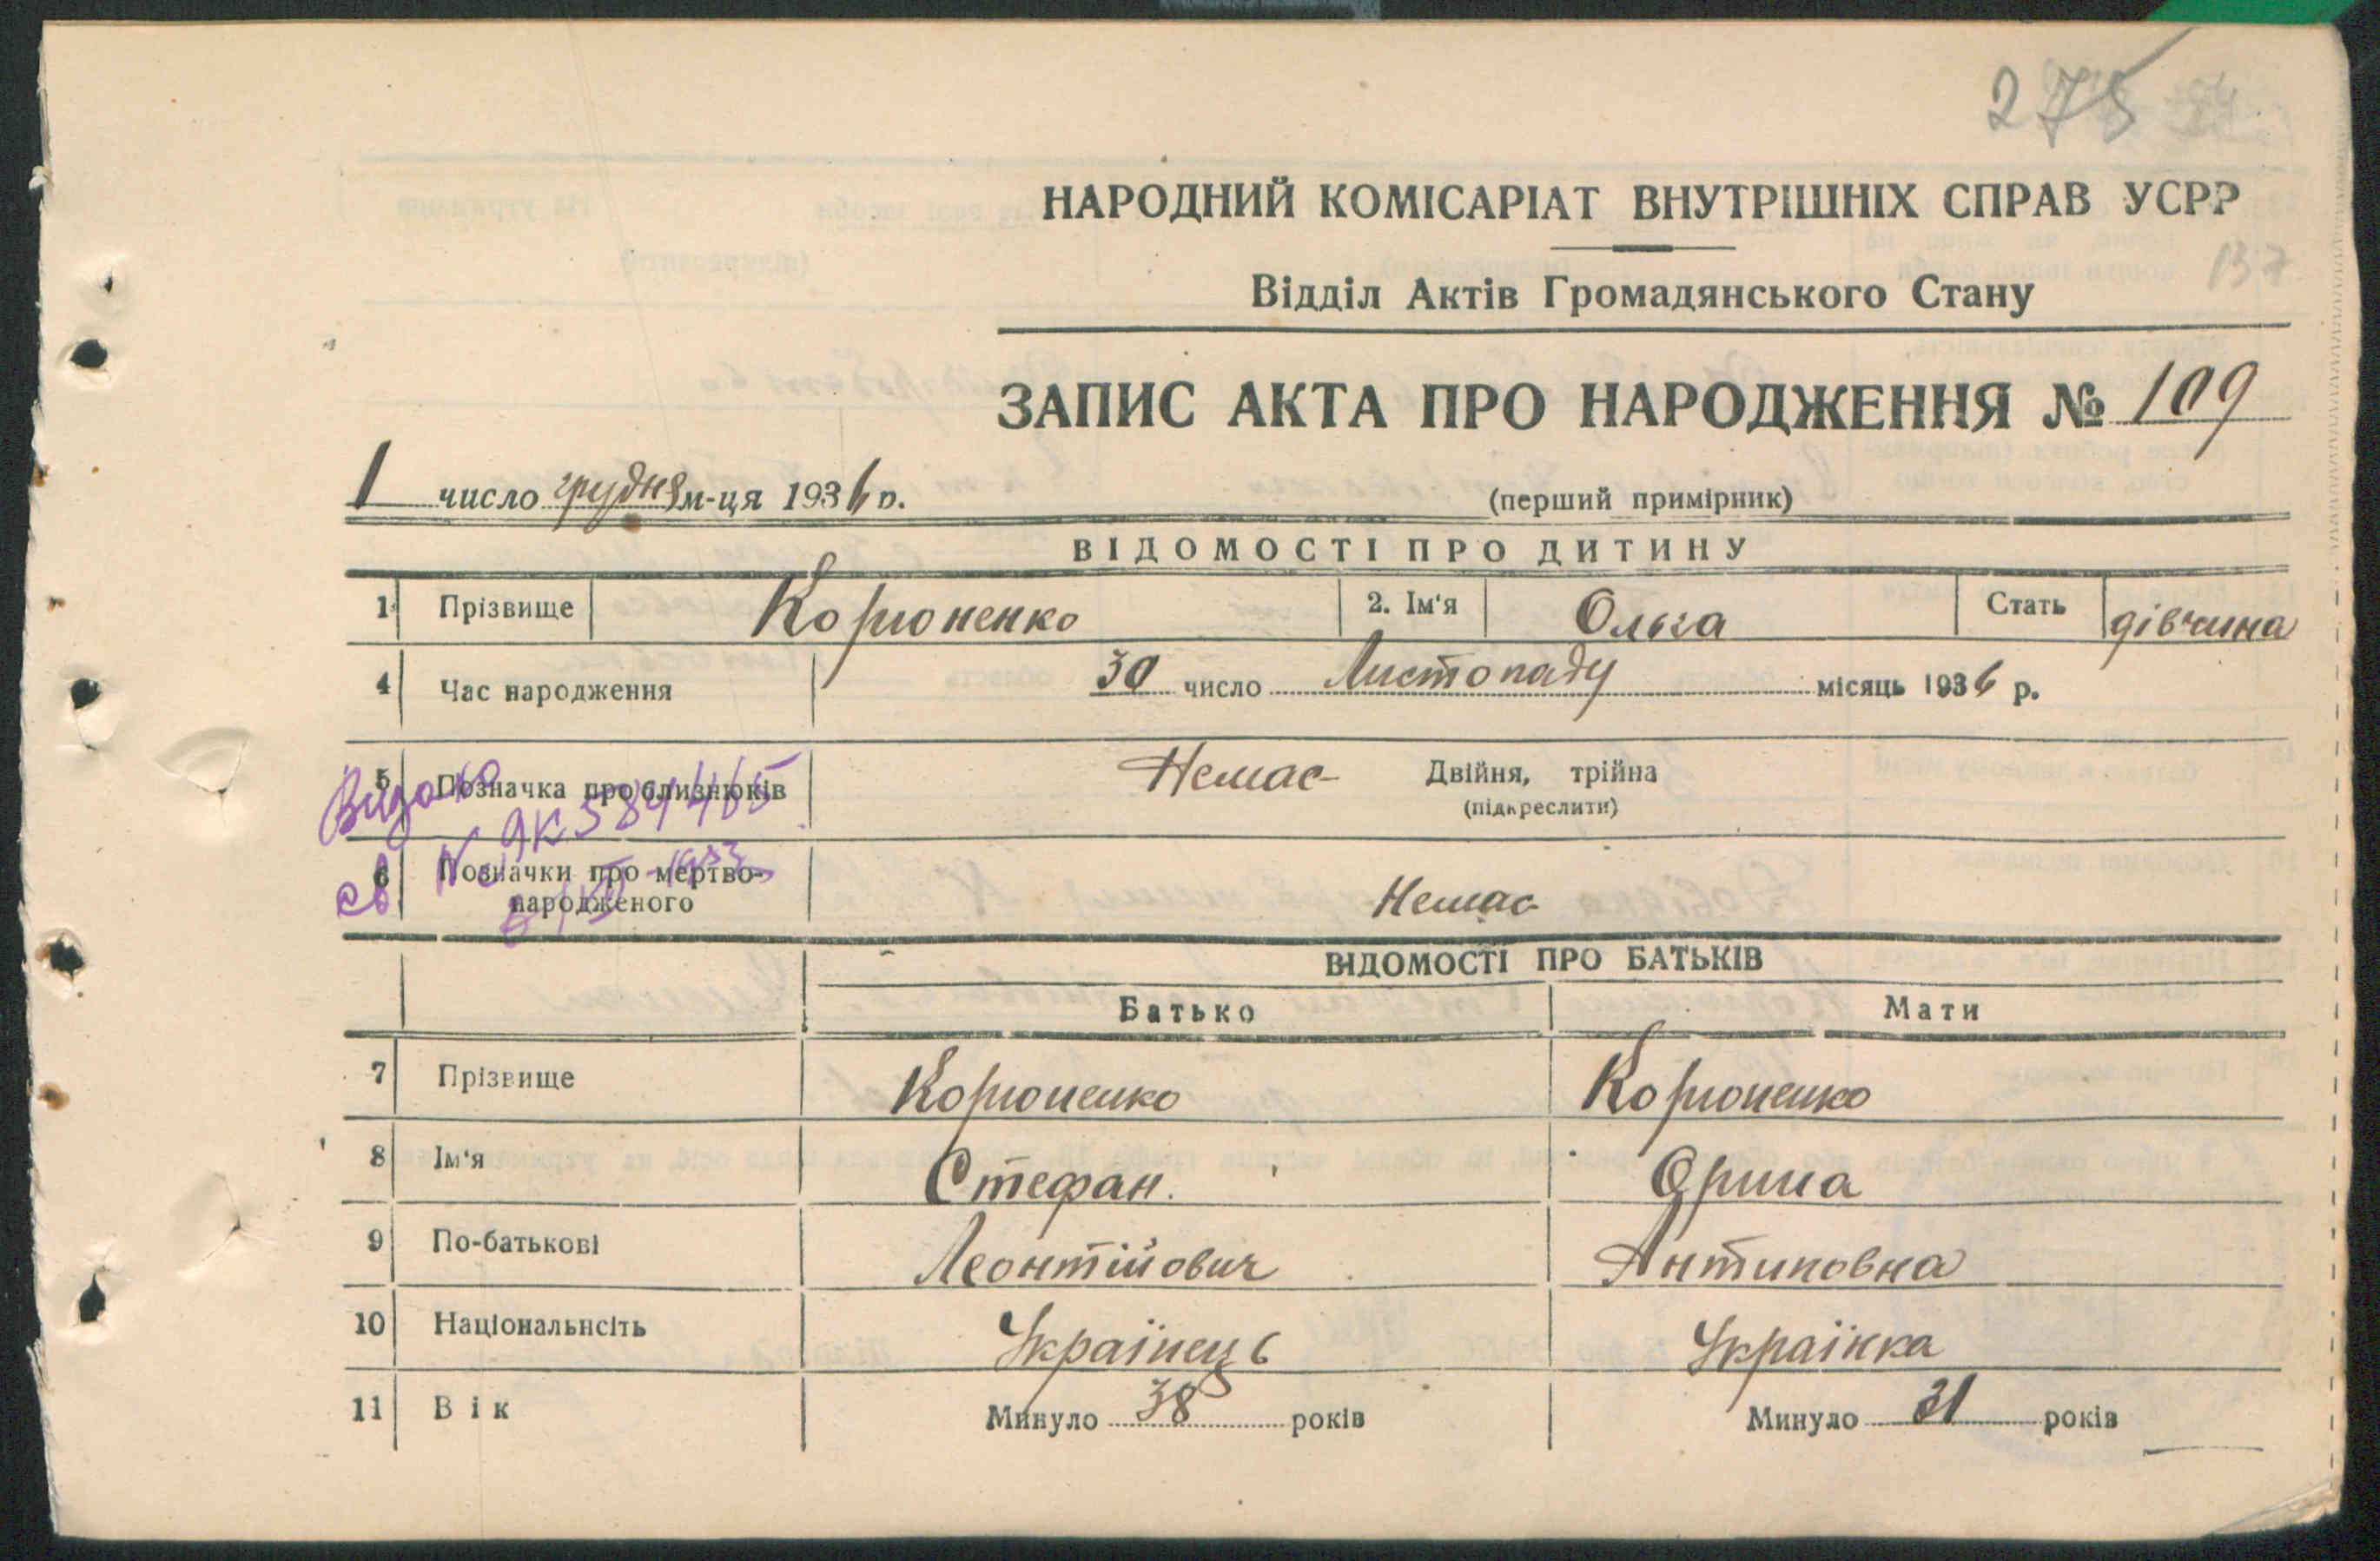 275
НАРОДНИЙ КОМІСАРІАТ ВНУТРІШНІХ СПРАВ УСРР
137
Відділ Актів Громадянського Стану
ЗАПИС АКТА ПРО НАРОДЖЕННЯ № 109
1 число грудня м-ця 1936 р.
(перший примірник)
ВІДОМОСТІ ПРО ДИТИНУ
1 Прізвище Корюненко 2. Ім'я Ольга Стать дівчина
4 Час народження 30 число Листопаду місяць 1936 р.
5 Позначка про близнюків Немає Двійня, трійна
(підкреслити)
Видано
св. № ЯК 584465
6 Позначки про мертво-
народженого Немає
ВІДОМОСТІ ПРО БАТЬКІВ
Батько Мати
7 Прізвище Корюненко Корюненко
8 Ім'я Стефан. Орина
9 По-батькові Леонтійович Антиповна
10 Національнсіть Українець Українка
11 Вік Минуло 38 років Минуло 31 років